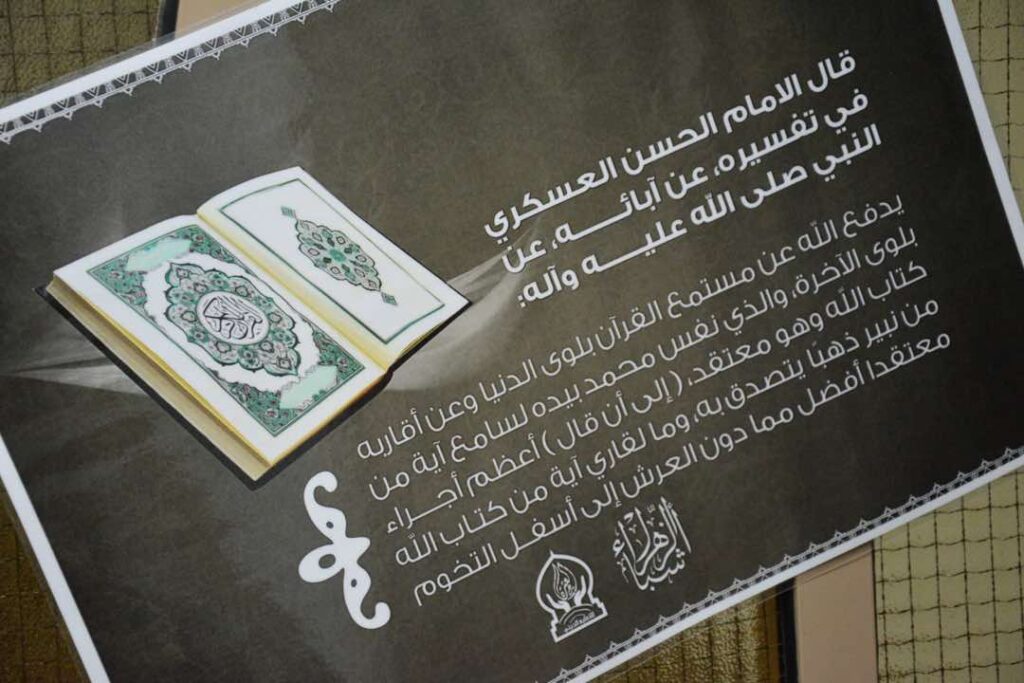 قال الامام الحسن العسكري
في تفسيره، عن آبائـــه، عن
النبي صلى الله عليـــه وآله:
يدفع الله عن مستمع القرآن بلوى الدنيا وعن أقاربه
بلوى الآخرة، والذي نفس محمد بيده لسامع آية من
كتاب الله وهو معتقد، ( إلى أن قال ) أعظم أجـــراء
من نبير ذهبًا يتصدق به، وما لقاري آية من كتاب الله
معتقدا أفضل مما دون العرش إلى أسفـل التخوم
شباب
الزهراء